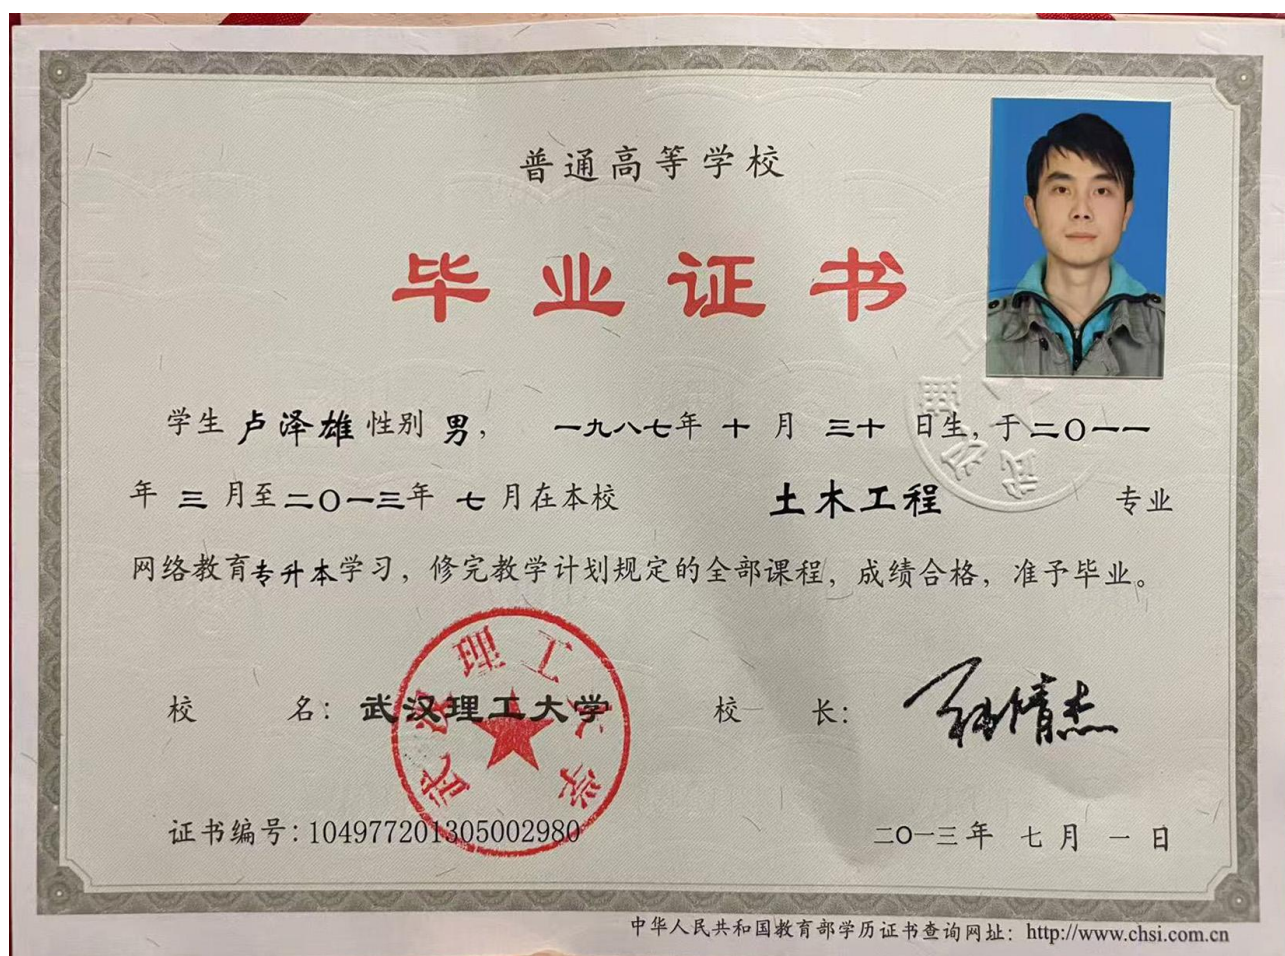 普通高等学校
毕业证书
学生 卢泽雄 性别 男, 一九八七年 十 月 三十 日生, 于二〇一一
年 三 月至二〇一三年 七 月在本校 土木工程 专业
网络教育专升本学习, 修完教学计划规定的全部课程, 成绩合格, 准予毕业。
武汉理工大学
校 名: 武汉理工大学 校 长:
证书编号: 104977201305002980 二〇一三年 七月 一日
中华人民共和国教育部学历证书查询网址: http://www.chsi.com.cn